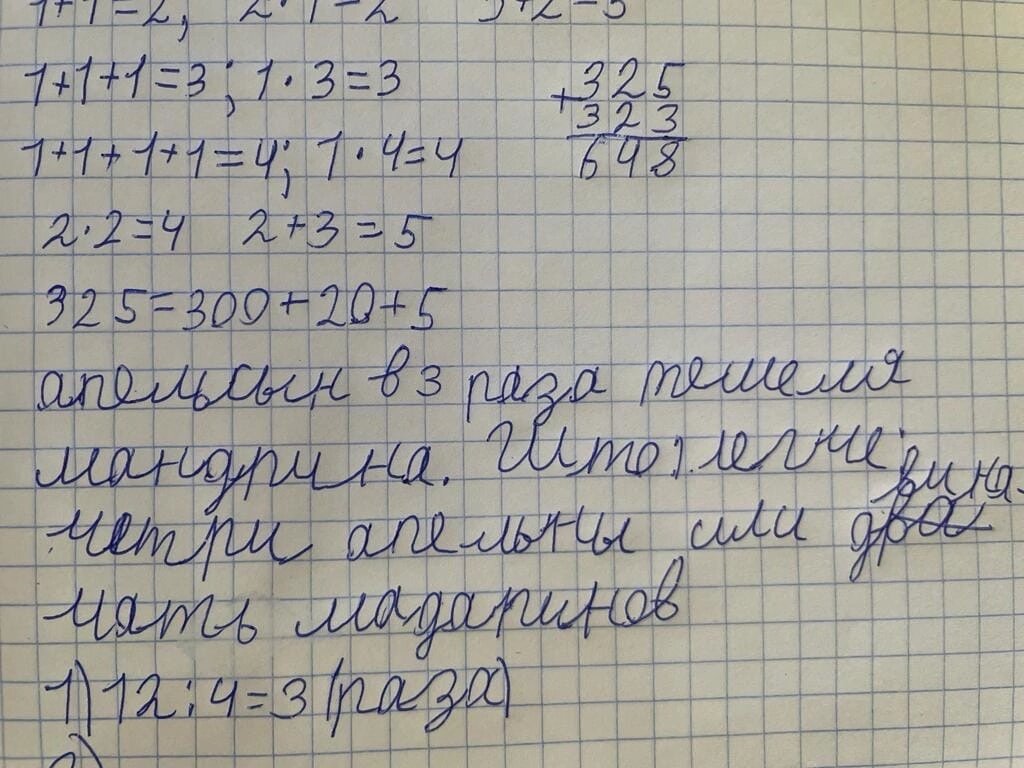 1+1=2; 2·1=2 3+2=5
1+1+1=3; 1·3=3
1+1+1+1=4; 1·4=4
2·2=4 2+3=5
325=300+20+5
+325
323
648
апельсын в 3 раза тешеля
мандрина. Што легче
чет​ри апельны или два вина-
чать мадаринов
1) 12:4=3 (раза)
2)